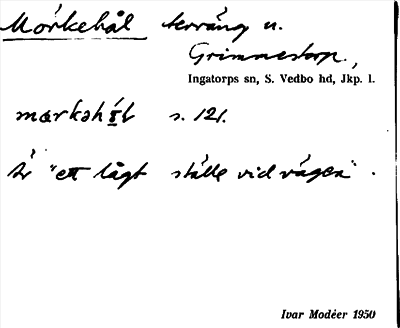 Mörkehål terräng u.
Grimmestorp.,
Ingatorps sn, S. Vedbo hd, Jkp. l.
s. 121.
är "ett lågt ställe vid vägen".
Ivar Modéer 1950